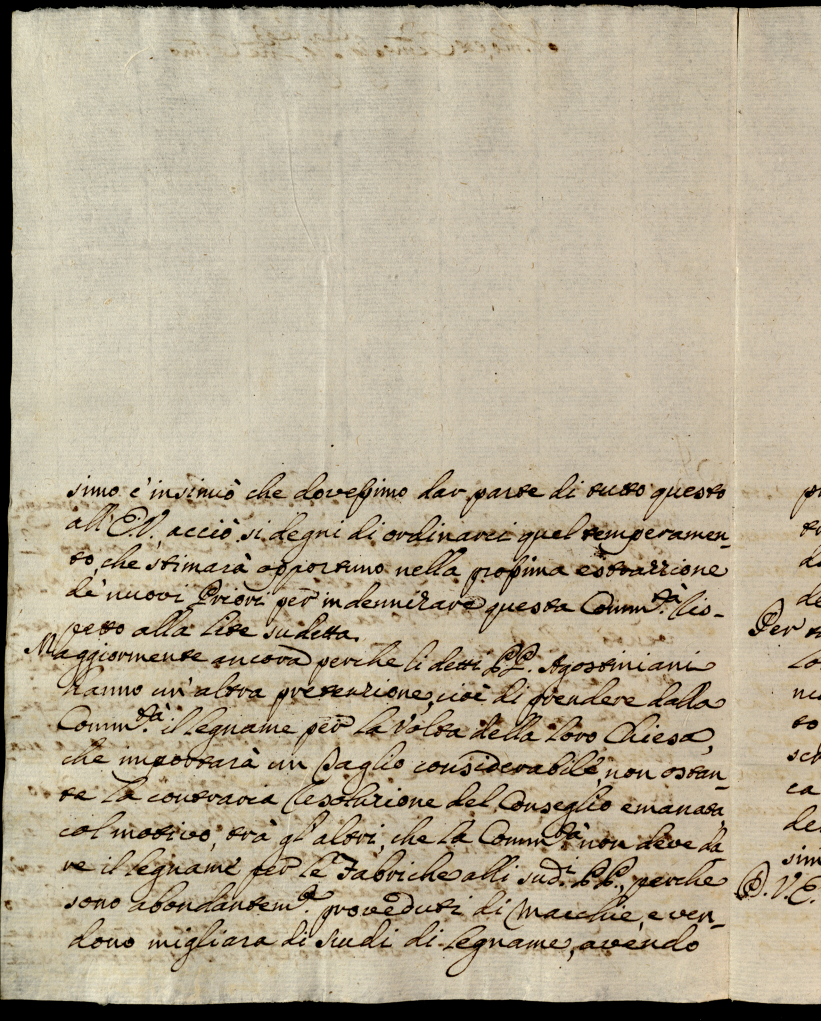 simo c'insinuò che dovessimo dar parte di tutto questo
all'E.V., acciò si degni di ordinarci quel temperamen-
to, che stimarà opportuno nella prossima estrazzione
de' nuovi Priori per indennizare questa Comm.tà ris-
petto alla lite sudetta.
Maggiormente ancora perche li detti PP. Agostiniani
hanno un'altra pretenzione, cioè di prendere dalla
Comm.tà il legname per la Volta della loro Chiesa,
che importarà un taglio considerabile, non ostan-
te la contraria resoluzione del Conseglio emanata
col motivo, trà gl'altri, che la Comm.tà non deve da
re il legname per le Fabriche alli sud.i PP., perche
sono abondantem.e proveduti di Macchie, e ven-
dono migliara di scudi di legname, avendo
Per
V.E.